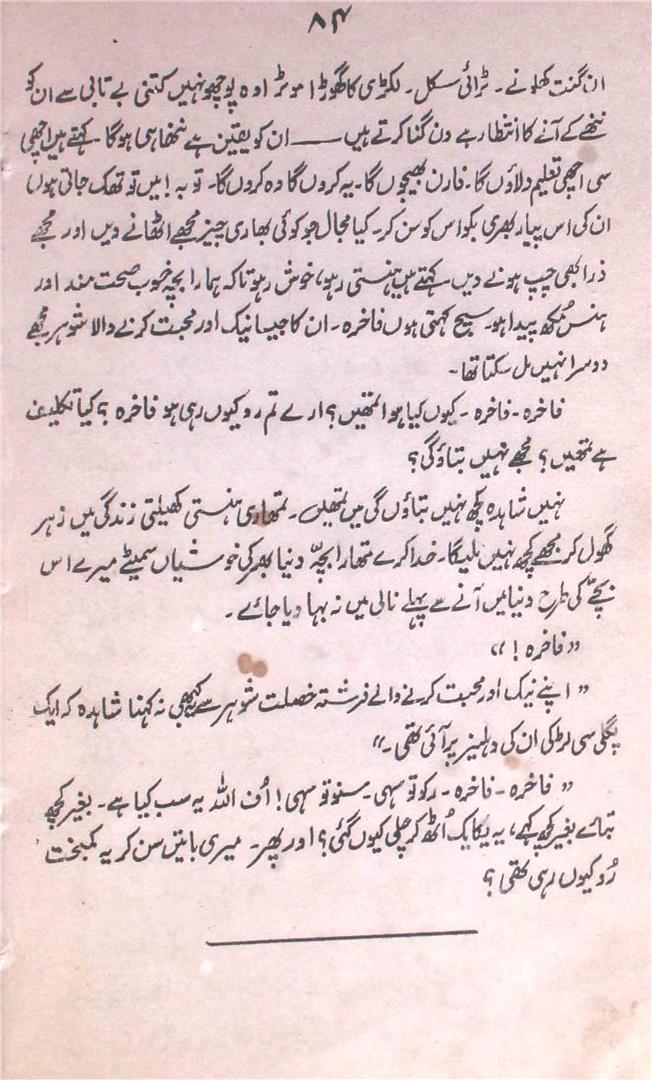 ۸۴
ان گنت کھلونے۔ ٹرائی سکل۔ لکڑی کا گھوڑا موٹر اوہ پوچھو نہیں کتنی بے تابی سے ان کو
ننھے کے آنے کا انتظار ہے دن گنا کرتے ہیں ــــــ ان کو یقین ہے ننھا ہی ہوگا۔ کہتے ہیں اچھی
سی اچھی تعلیم دلاؤں گا۔ فارن بھیجوں گا۔ یہ کروں گا وہ کروں گا۔ توبہ! میں تو تھک جاتی ہوں
ان کی اس پیار بھری بکواس کو سن کر۔ کیا مجال جو کوئی بھاری چیز مجھے اٹھانے دیں اور مجھے
ذرا بھی چپ ہونے دیں۔ کہتے ہیں ہنستی رہو، خوش رہو تاکہ ہمارا بچہ خوب صحت مند اور
ہنس مُکھ پیدا ہو۔ سچ کہتی ہوں فاخرہ۔ ان کا جیسا نیک اور محبت کرنے والا شوہر مجھے
دوسرا نہیں مل سکتا تھا۔
فاخرہ۔ فاخرہ۔ کیوں کیا ہوا تمھیں؟ ارے تم رو کیوں رہی ہو فاخرہ؟ کیا تکلیف
ہے تمھیں؟ مجھے نہیں بتاؤ گی؟
نہیں شاہدہ کچھ نہیں بتاؤں گی میں تمھیں۔ تمھاری ہنستی کھیلتی زندگی میں زہر
گھول کر مجھے کچھ نہیں ملیگا۔ خدا کرے تمھارا بچّہ دنیا بھر کی خوشیاں سمیٹے میرے اس
بچّے کی طرح دنیا میں آنے سے پہلے نالی میں نہ بہا دیا جائے۔
"فاخرہ!"
"اپنے نیک اور محبت کرنے والے فرشتہ خصلت شوہر سے کبھی نہ کہنا شاہدہ کہ ایک
پگلی سی لڑکی ان کی دہلیز پر آئی تھی۔"
"فاخرہ۔ فاخرہ۔ رکو تو سہی۔ سنو تو سہی! اُف اللہ یہ سب کیا ہے۔ بغیر کچھ
بتائے بغیر کچھ کہے، یہ یکایک اُٹھ کر چلی کیوں گئی؟ اور پھر۔ میری باتیں سن کر یہ کمبخت
رُو کیوں رہی تھی؟